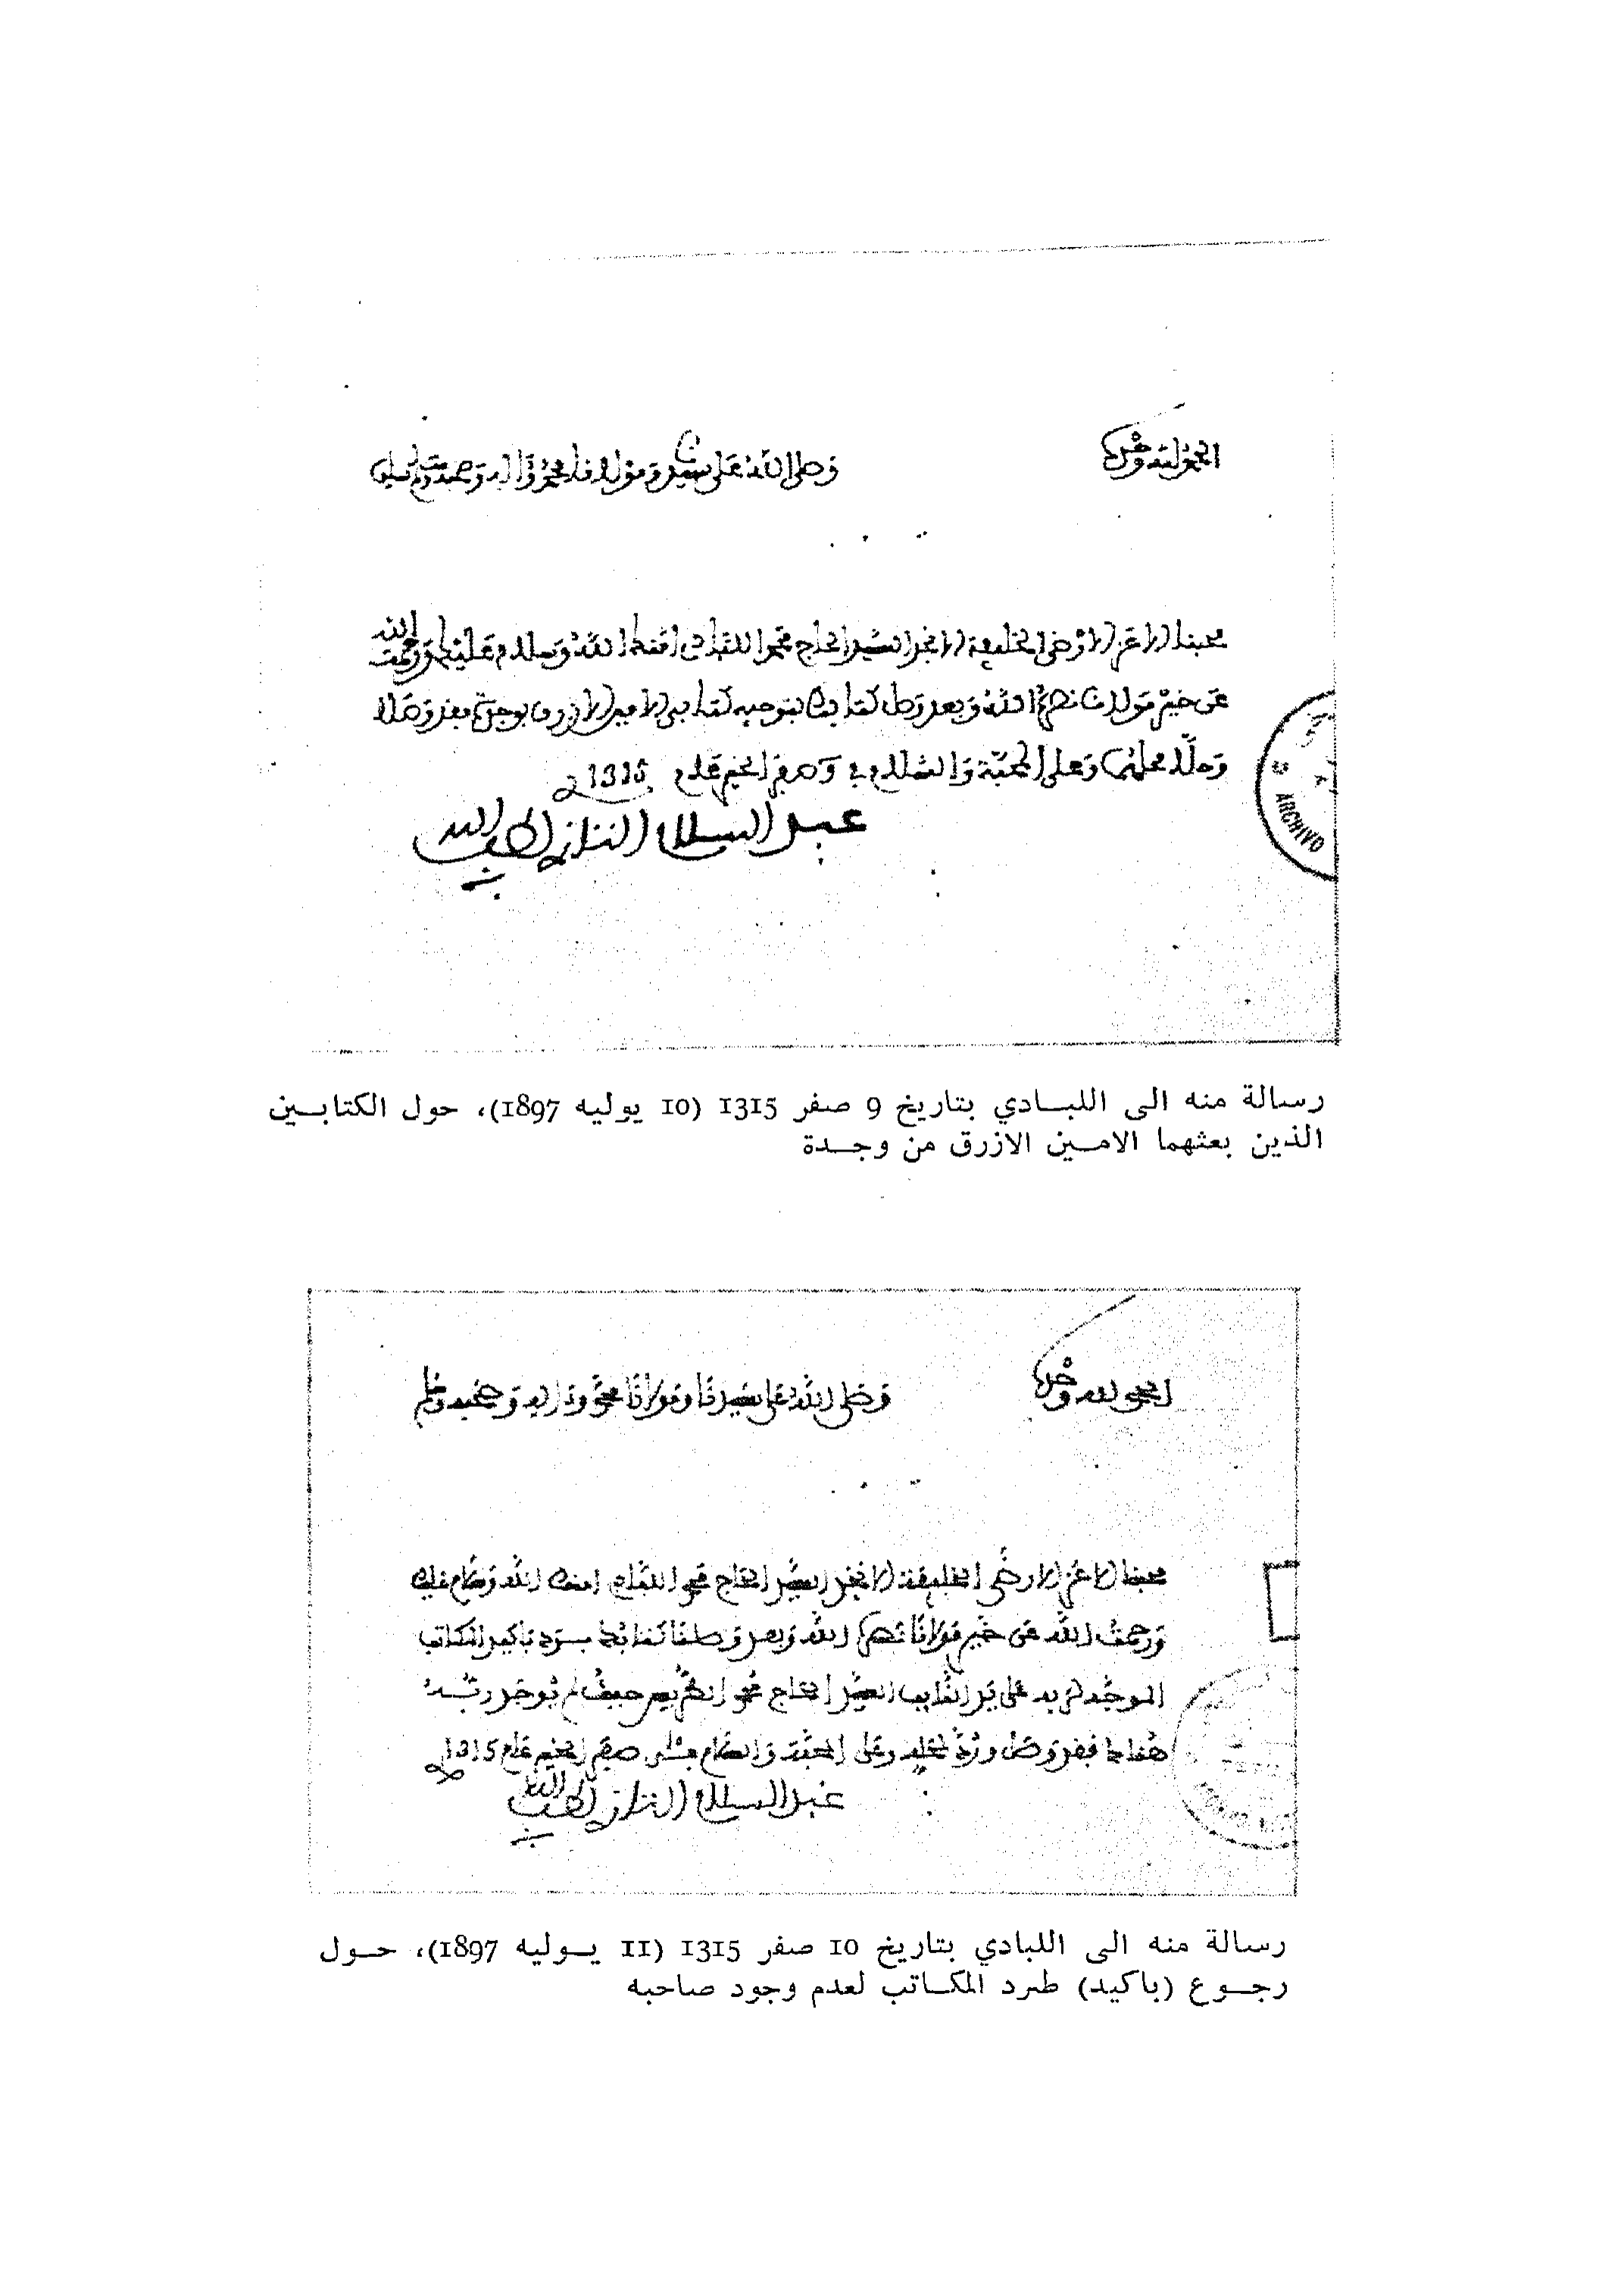 الحمد لله وحده
وصلى الله على سيدنا ومولانا محمد وآله وصحبه وسلم
محبنا الاعز الارضى الخليفة الانجد السيد الحاج محمد اللبادي امنك الله وسلام عليك ورحمت الله
عن خير مولانا نصره الله وبعد وصل كتابك بتوجيه كتابي الامين الازرق بوجدة فقد وصلا
وصلا محلهما وعلى المحبة والسلام في 9 صفر الخير عام 1315
عبد السلام التازي لطف الله
به
ARCHIVO
رسالة منه الى اللبـادي بتاريخ 9 صفر 1315 (10 يوليه 1897)، حول الكتابـين
الذين بعثهما الامـين الازرق من وجـدة
الحمد لله وحده
وصلى الله على سيدنا ومولانا محمد وآله وصحبه وسلم
محبنا الاعز الارضى الخليفة الانجد السيد الحاج محمد اللبادي امنك الله وسلام عليك
ورحمت الله عن خير مولانا نصره الله وبعد وصلنا كتابك برد باكيد المكاتب
الموجه لربه على يد النايب السيد الحاج محمد الطريس حيث لم يوجد ربه
هناك فقد وصل ورد لمحله وعلى المحبة والسلام صفر الخير عام 1315
عبد السلام التازي لطف الله
به
رسالة منه الى اللبادي بتاريخ 10 صفر 1315 (11 يـوليه 1897)، حـول
رجـوع (باكيد) طرد المكـاتب لعدم وجود صاحبه